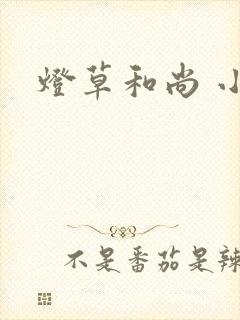 燈草和尚 小
不是番茄是辣